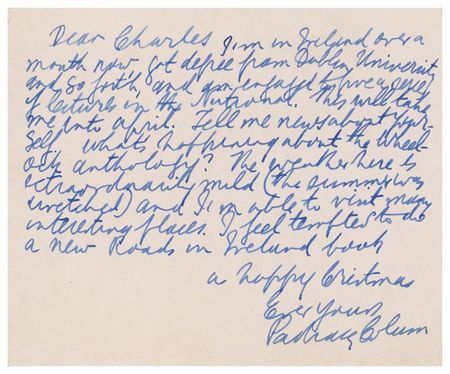 Dear Charles I'm in Ireland over a
month now, got degree from Dublin University
and so forth, and am engaged to give a series
of lectures in the National. This will take
me into April. Tell me news about your
self. What's happening about the
anthology? The weather here is
extraordinarily mild (the summer was
wretched) and I'm able to visit many
interesting places. I feel tempted to do
a new Roads in Ireland book
a happy Cristmas
Ever Yours
Padraic Colum